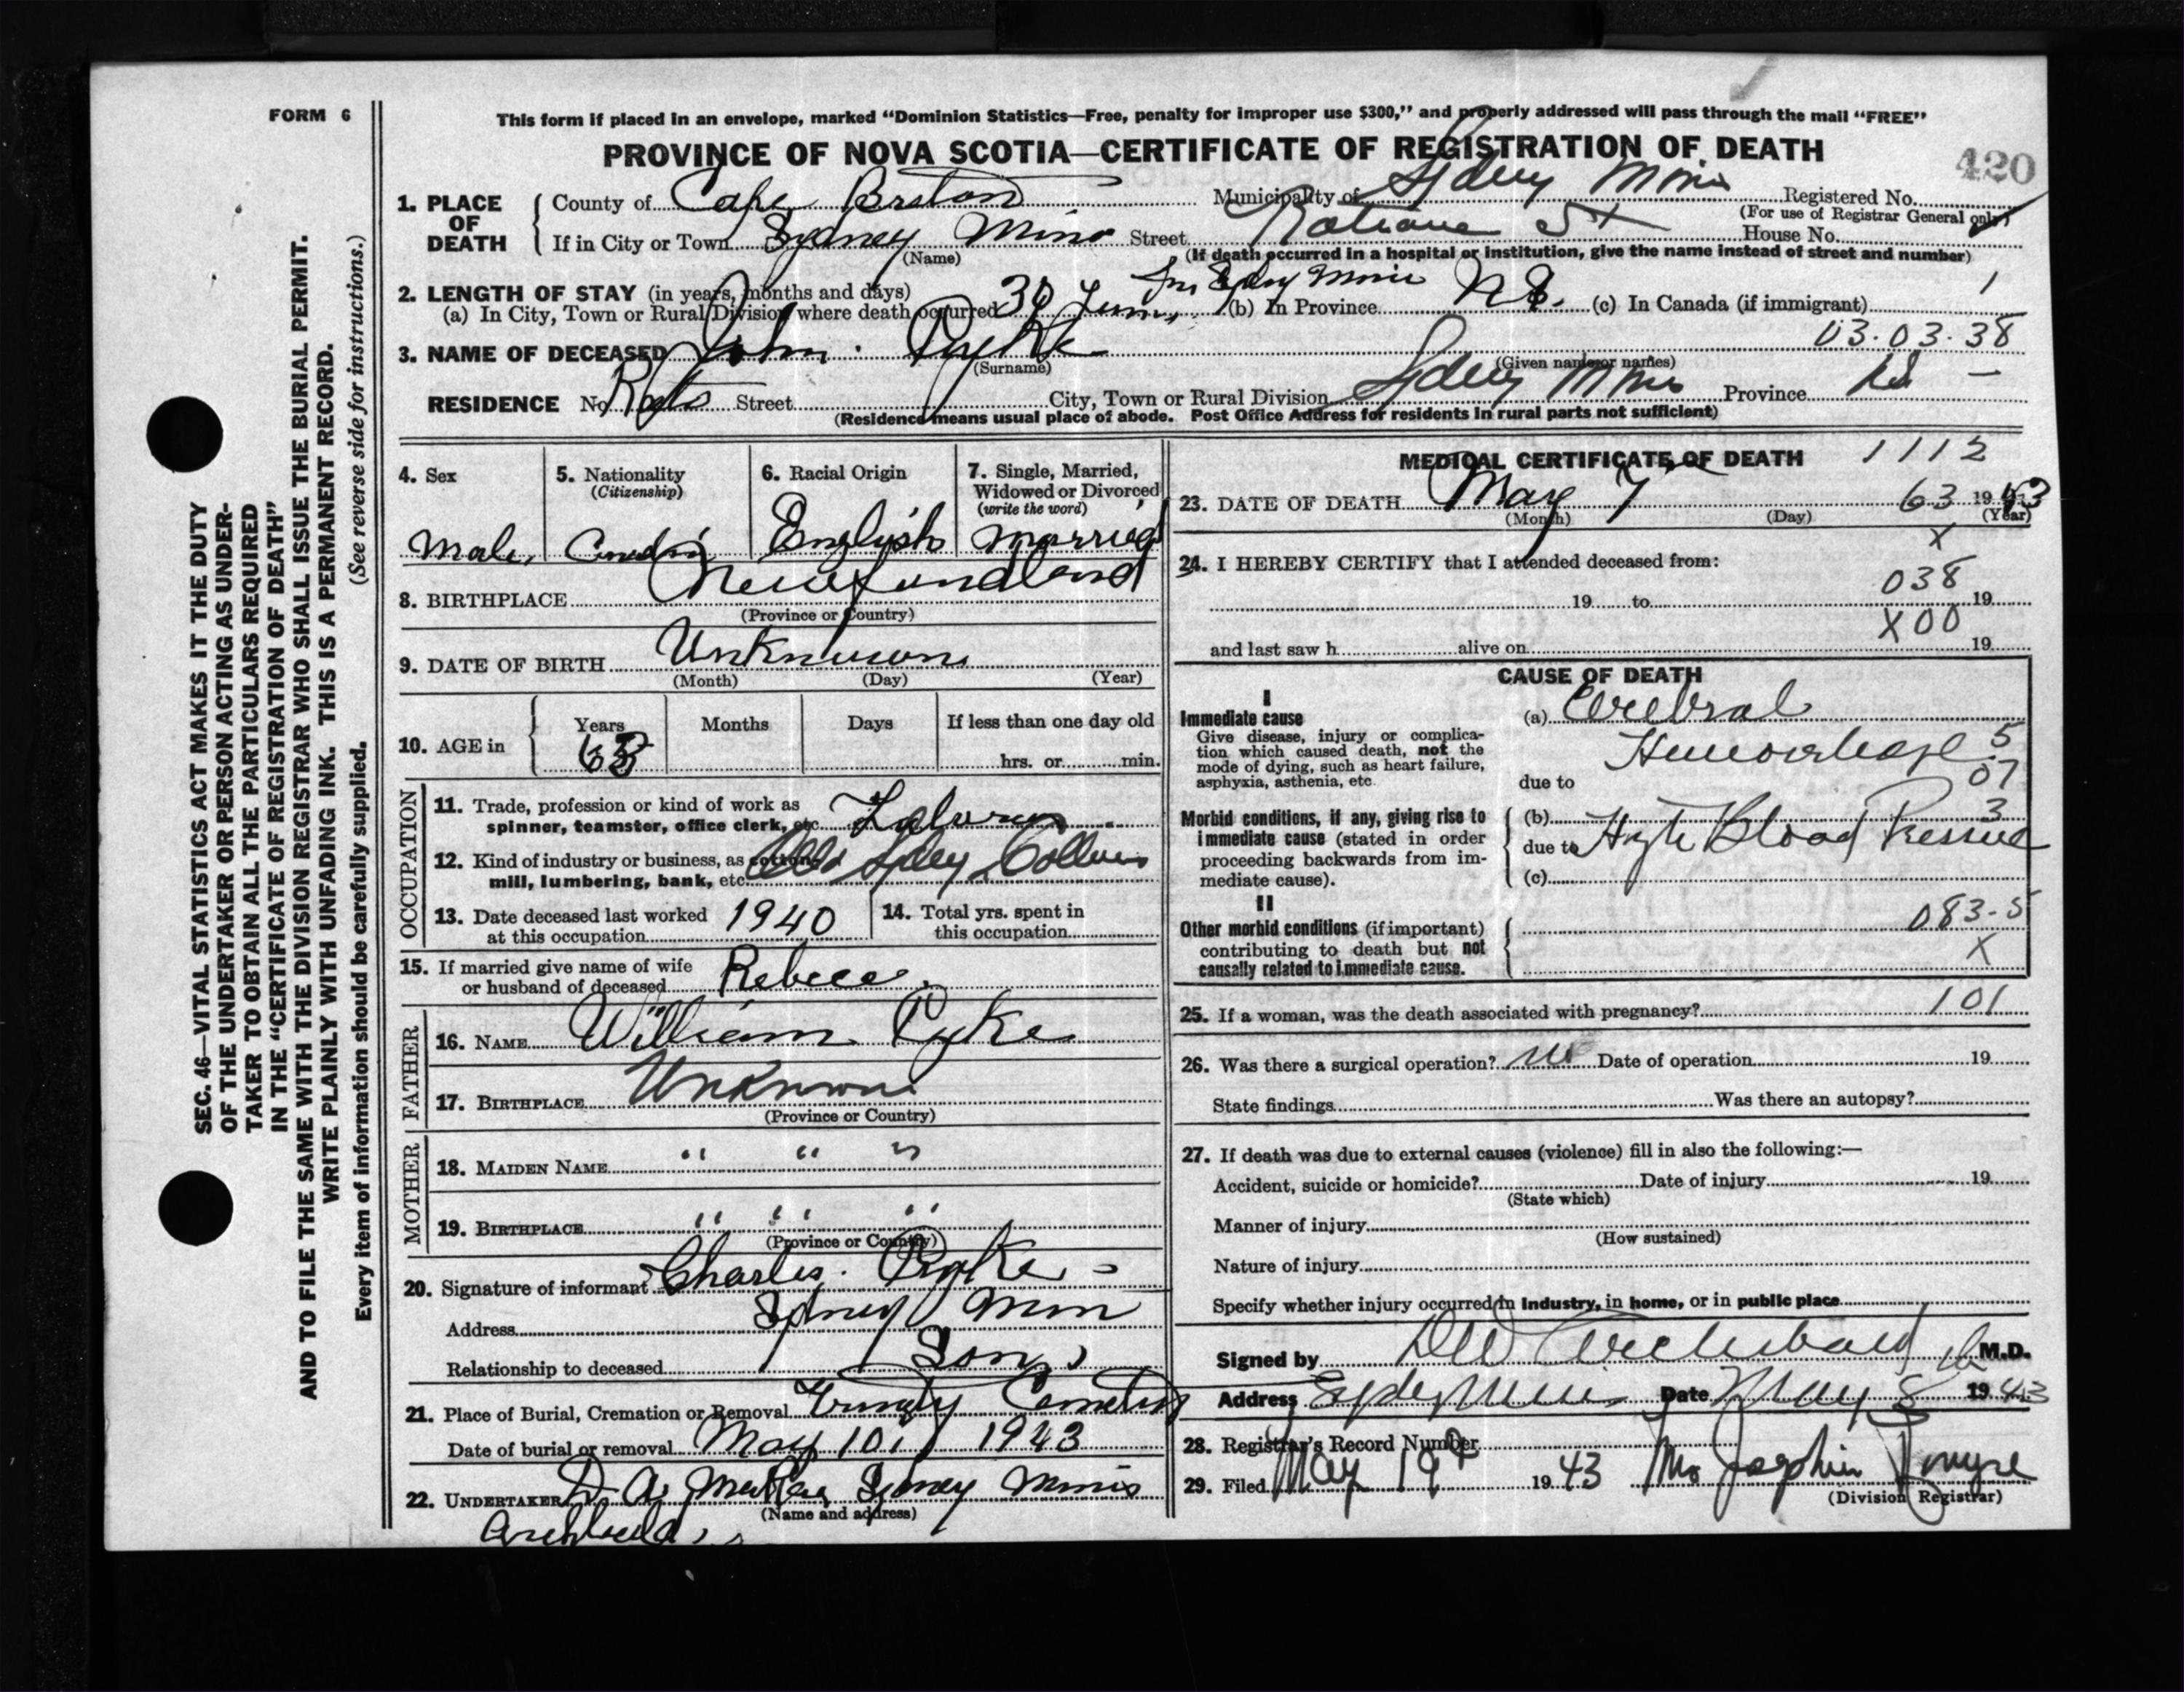 FORM 6
This form if placed in an envelope, marked “Dominion Statistics—Free, penalty for improper use $300,” and properly addressed will pass through the mail “FREE”
PROVINCE OF NOVA SCOTIA—CERTIFICATE OF REGISTRATION OF DEATH
420
1. PLACE OF DEATH
County of Cape Breton Municipality of Sydney Mines Registered No.
(For use of Registrar General only)
If in City or Town Sydney Mines Street St House No.
(Name) (If death occurred in a hospital or institution, give the name instead of street and number)
2. LENGTH OF STAY (in years, months and days)
(a) In City, Town or Rural Division where death occurred 30 (b) In Province N.S. (c) In Canada (if immigrant) 1
03.03.38
3. NAME OF DECEASED John Pyke
(Surname) (Given name or names)
RESIDENCE No. Street City, Town or Rural Division Sydney Mines Province NS —
(Residence means usual place of abode. Post Office Address for residents in rural parts not sufficient)
4. Sex Male
5. Nationality (Citizenship)
6. Racial Origin English
7. Single, Married, Widowed or Divorced (write the word) Married
8. BIRTHPLACE Newfoundland
(Province or Country)
9. DATE OF BIRTH Unknown
(Month) (Day) (Year)
10. AGE in Years Months Days If less than one day old
63 hrs. or min.
OCCUPATION
11. Trade, profession or kind of work as
spinner, teamster, office clerk, etc.
12. Kind of industry or business, as cotton
mill, lumbering, bank, etc.
13. Date deceased last worked
at this occupation 1940
14. Total yrs. spent in
this occupation
15. If married give name of wife
or husband of deceased
FATHER
16. NAME William Pyke
17. BIRTHPLACE Unknown
(Province or Country)
MOTHER
18. MAIDEN NAME " " "
19. BIRTHPLACE " " "
(Province or Country)
20. Signature of informant Charles Pyke
Address Sydney
Relationship to deceased Son
21. Place of Burial, Cremation or Removal Trinity Cemetery
Date of burial or removal May 10, 1943
22. UNDERTAKER D. A. Sydney Mines
(Name and address)
MEDICAL CERTIFICATE OF DEATH 1112
23. DATE OF DEATH May 7 63 1943
(Month) (Day) (Year)
X
24. I HEREBY CERTIFY that I attended deceased from:
038
19 to 19
X00
and last saw h alive on 19
CAUSE OF DEATH
I
Immediate cause
Give disease, injury or complica-
tion which caused death, not the
mode of dying, such as heart failure,
asphyxia, asthenia, etc.
(a) Cerebral
Hemorrhage 5
due to 07
Morbid conditions, if any, giving rise to
immediate cause (stated in order
proceeding backwards from im-
mediate cause).
(b) 3
due to Blood Pressure
(c)
II
Other morbid conditions (if important)
contributing to death but not
causally related to immediate cause.
083-5
X
25. If a woman, was the death associated with pregnancy? 101
26. Was there a surgical operation? no Date of operation 19
State findings Was there an autopsy?
27. If death was due to external causes (violence) fill in also the following:—
Accident, suicide or homicide? Date of injury 19
(State which)
Manner of injury
(How sustained)
Nature of injury
Specify whether injury occurred in industry, in home, or in public place
Signed by Archibald M.D.
Address Sydney Mines Date May 8 1943
28. Registrar's Record Number
29. Filed May 19 1943
(Division Registrar)
SEC. 46—VITAL STATISTICS ACT MAKES IT THE DUTY
OF THE UNDERTAKER OR PERSON ACTING AS UNDER-
TAKER TO OBTAIN ALL THE PARTICULARS REQUIRED
IN THE “CERTIFICATE OF REGISTRATION OF DEATH”
AND TO FILE THE SAME WITH THE DIVISION REGISTRAR WHO SHALL ISSUE THE BURIAL PERMIT.
WRITE PLAINLY WITH UNFADING INK. THIS IS A PERMANENT RECORD.
Every item of information should be carefully supplied. (See reverse side for instructions.)